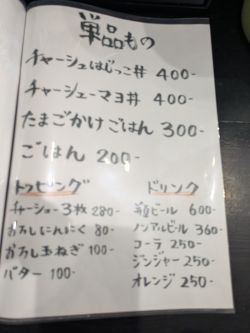 単品もの
チャーシュはじっこ丼 400-
チャーシューマヨ丼 400-
たまごかけごはん 300-
ごはん 200-
トッピング
チャーシュー3枚 280-
おろしにんにく 80-
おろし玉ねぎ 100-
バター 100-
ドリンク
ビール 600-
ノンアルビール 360-
コーラ 250-
ジンジャー 250-
オレンジ 250-